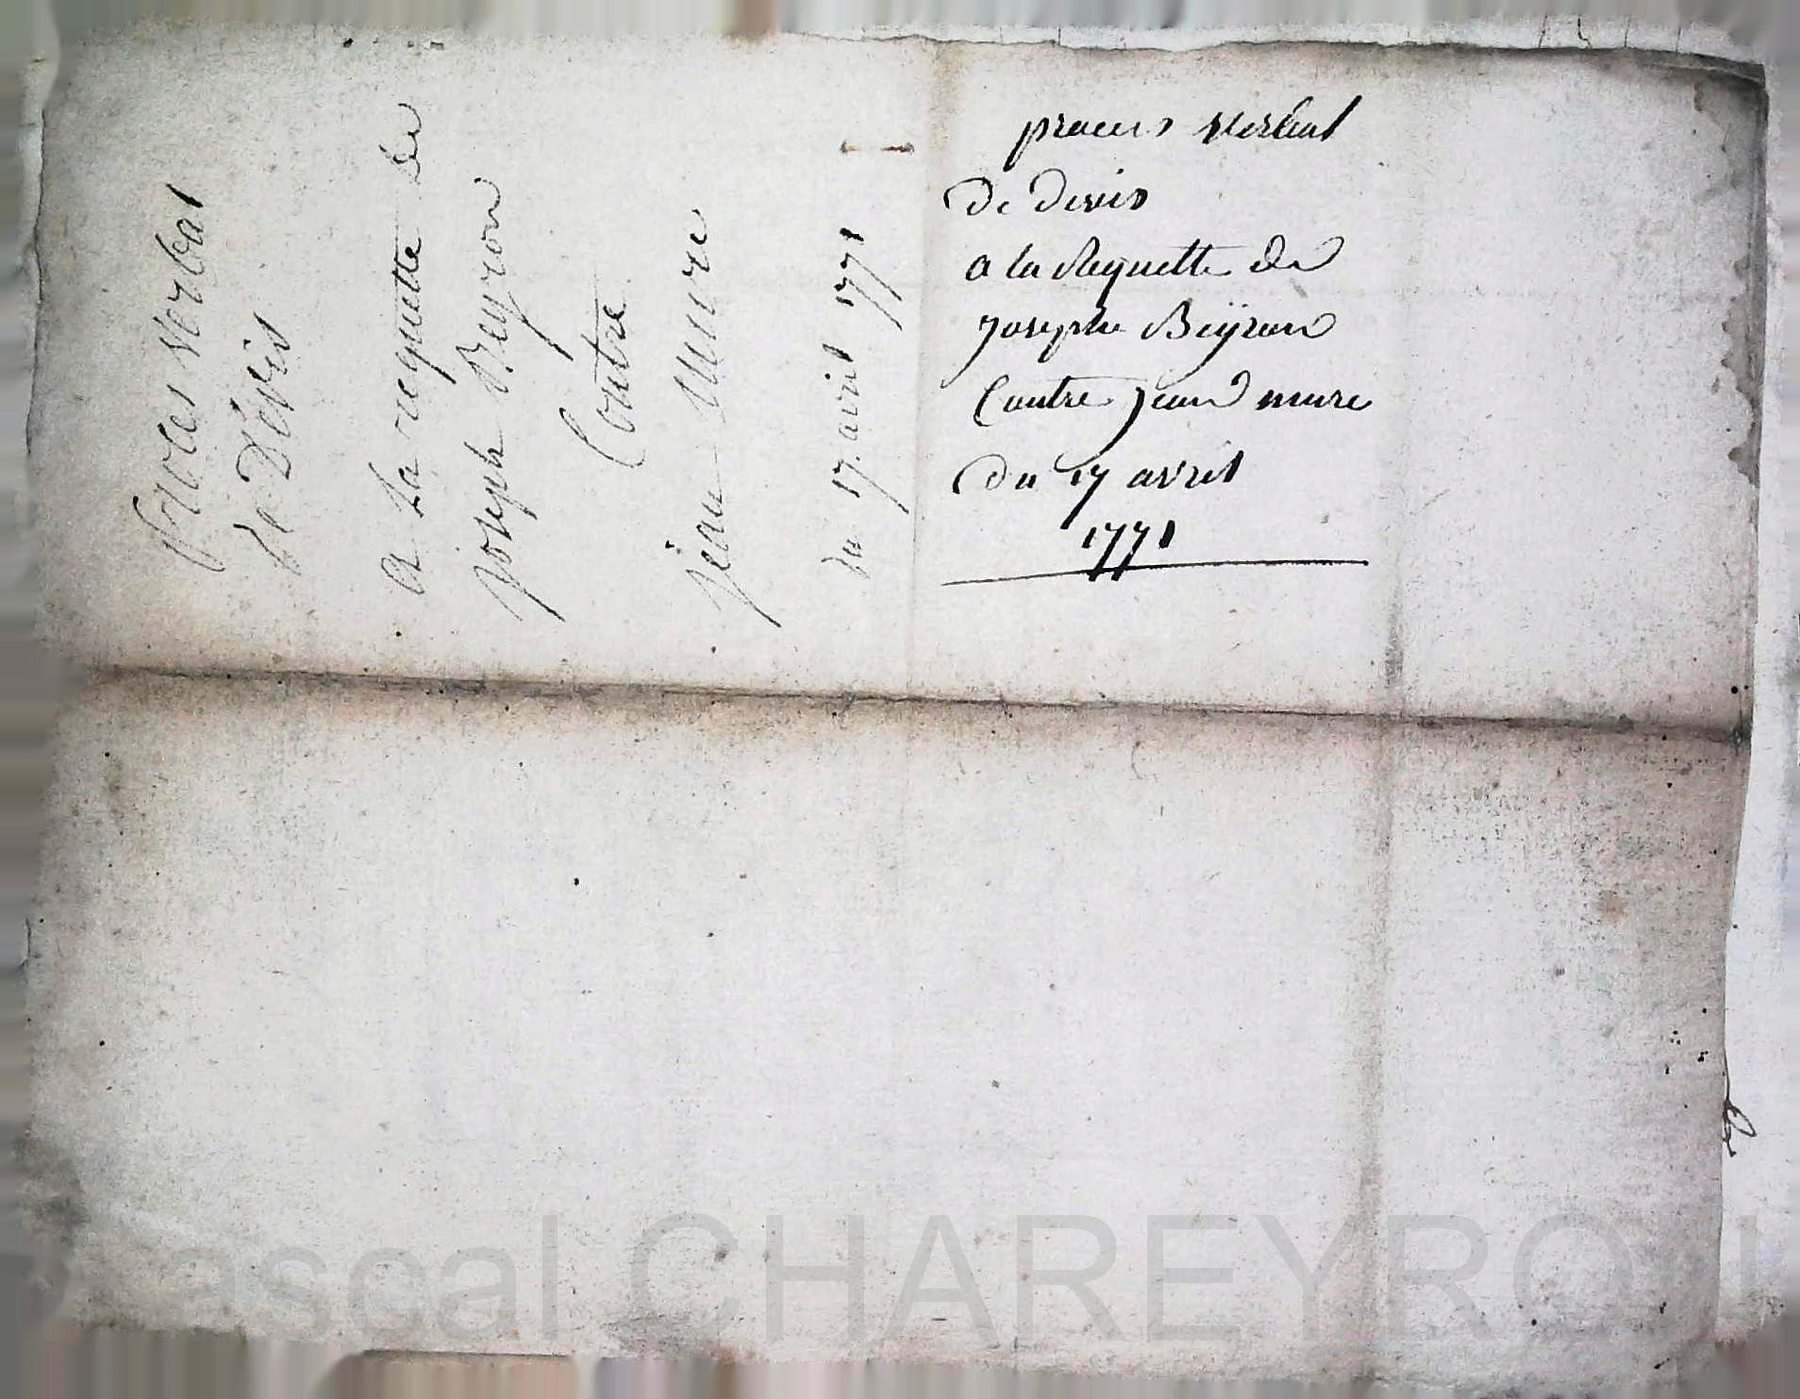 proces verbal
de devis
a la Requette de
Josephe Beÿron
Contre jean mure
du 17 avril
1771
proces verbal
de Dévis
a La requette de
joseph Beyron
Contre
jean Mure
du 17. avril 1771
Pascal CHAREYRON